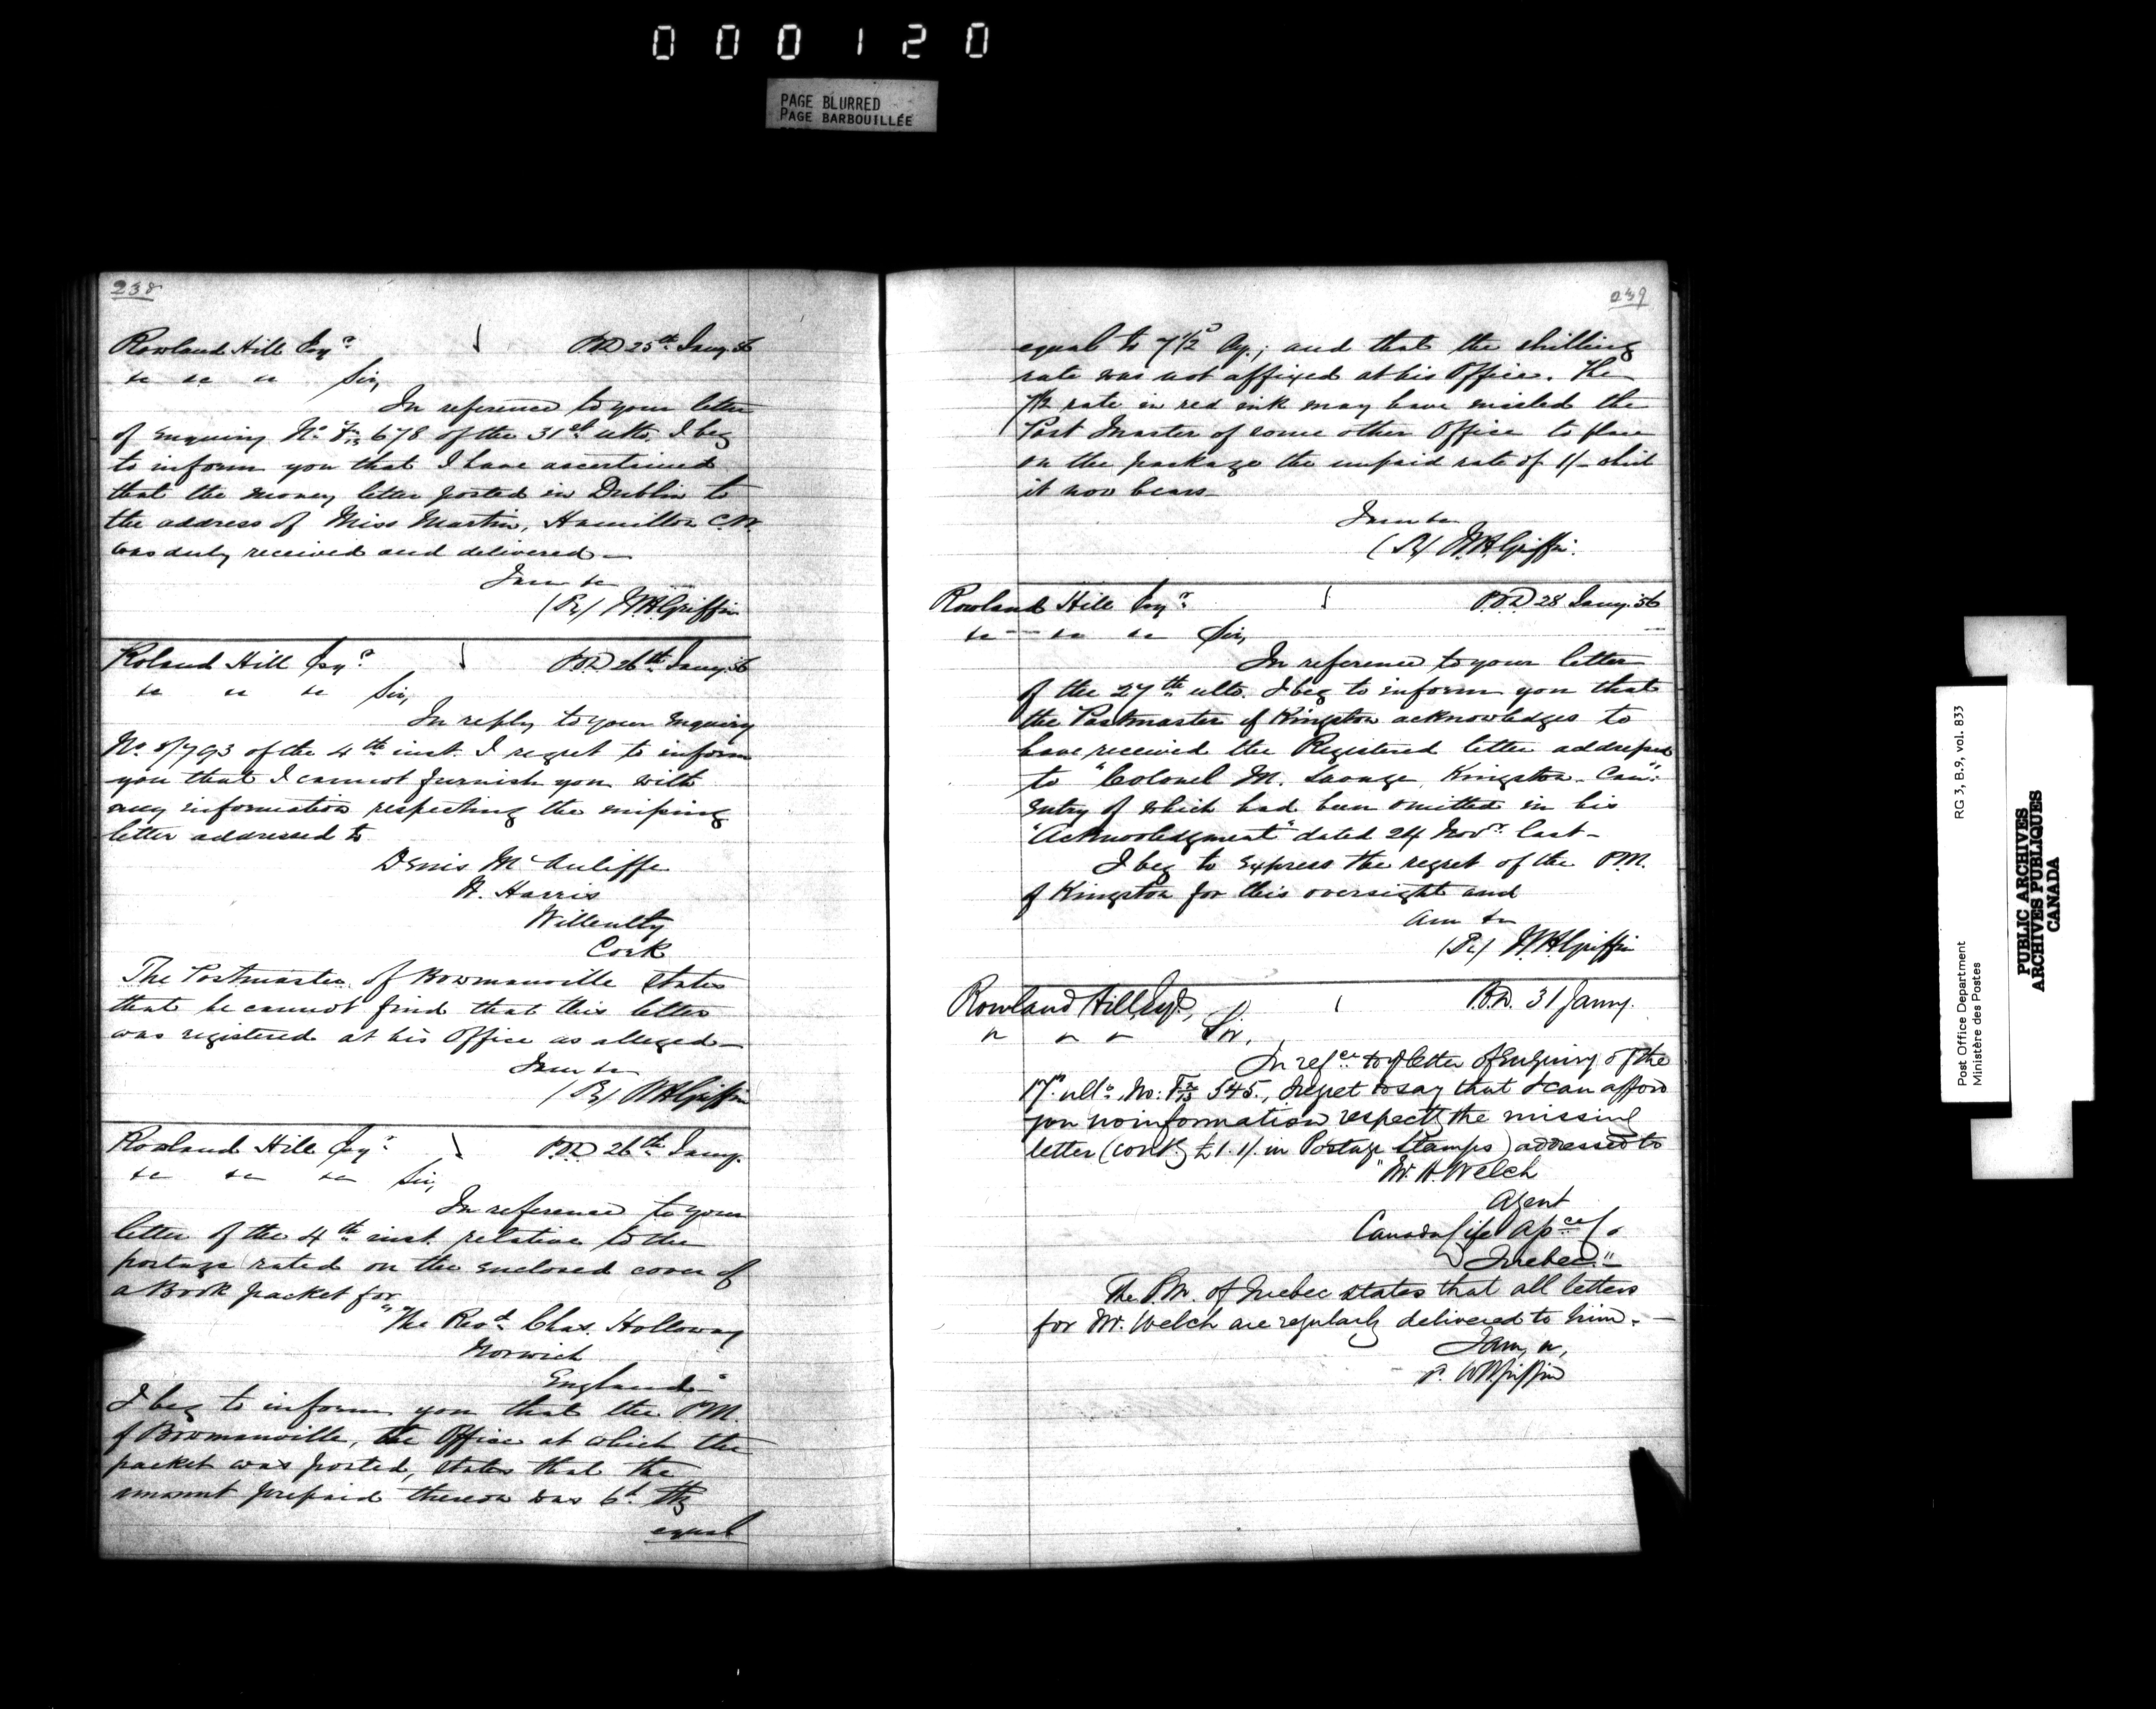 000120
PAGE BLURRED
PAGE BARBOUILLÉE
238
Rowland Hill Esqr. P.O.D 25th Jany. 56
&c &c &c Sir,
In reference to your letter
of Enquiry No. 678 of the 31st ulto. I beg
to inform you that I have ascertained
that the money letter posted in Dublin to
the address of Miss Martin, Hamilton C.W.
was duly received and delivered—
I am &c
W.H. Griffin
Roland Hill Esqr. P.O.D 26th Jany. 56
&c &c &c Sir,
In reply to your Enquiry
No. 8/793 of the 4th inst. I regret to inform
you that I cannot furnish you with
any information respecting the missing
letter addressed to
Denis McAuliffe
Harris
Cork
The Postmaster of Bowmanville states
that he cannot find that this letter
was registered at his Office as alleged—
I am &c
W.H. Griffin
Rowland Hill Esqr. P.O.D 26th Jany.
&c &c &c Sir,
In reference to your
letter of the 4th inst. relative to the
postage rated on the enclosed cover of
a Book packet for
"The Revd. Chas. Holloway
Norwich
England"
I beg to inform you that the P.M.
of Bowmanville, the Office at which the
packet was posted, states that the
amount prepaid thereon was 6d Stg
equal
239
equal to 7½d Cy.; and that the shilling
rate was not affixed at his Office. The
7½ rate in red ink may have misled the
Post Master of some other Office to place
on the package the unpaid rate of 1/- which
it now bears—
I am &c
W.H. Griffin.
Rowland Hill Esqr. P.O.D 28 Jany. 56
&c &c &c Sir,
In reference to your letter
of the 27th ulto. I beg to inform you that
the Postmaster of Kingston acknowledges to
have received the Registered letter addressed
to "Colonel M. Savage, Kingston. Can":
entry of which had been omitted in his
"Acknowledgment" dated 24 Novr. last—
I beg to express the regret of the P.M.
of Kingston for this oversight and
am &c
W.H. Griffin
Rowland Hill, Esqr., P.O.D. 31 Jany.
Sir,
In refce to yr letter of Enquiry of the
17th ulto., No: 545., I regret to say that I can afford
you no information respectg the missing
letter (contg £1.1/. in Postage Stamps) addressed to
"Mr. H. Welch
Agent
Canada Life Assce Co
Quebec."—
The P.M. of Quebec states that all letters
for Mr. Welch are regularly delivered to him.—
I am, &c,
W.H. Griffin
Post Office Department RG 3, B.9, vol. 833
Ministère des Postes
PUBLIC ARCHIVES
ARCHIVES PUBLIQUES
CANADA